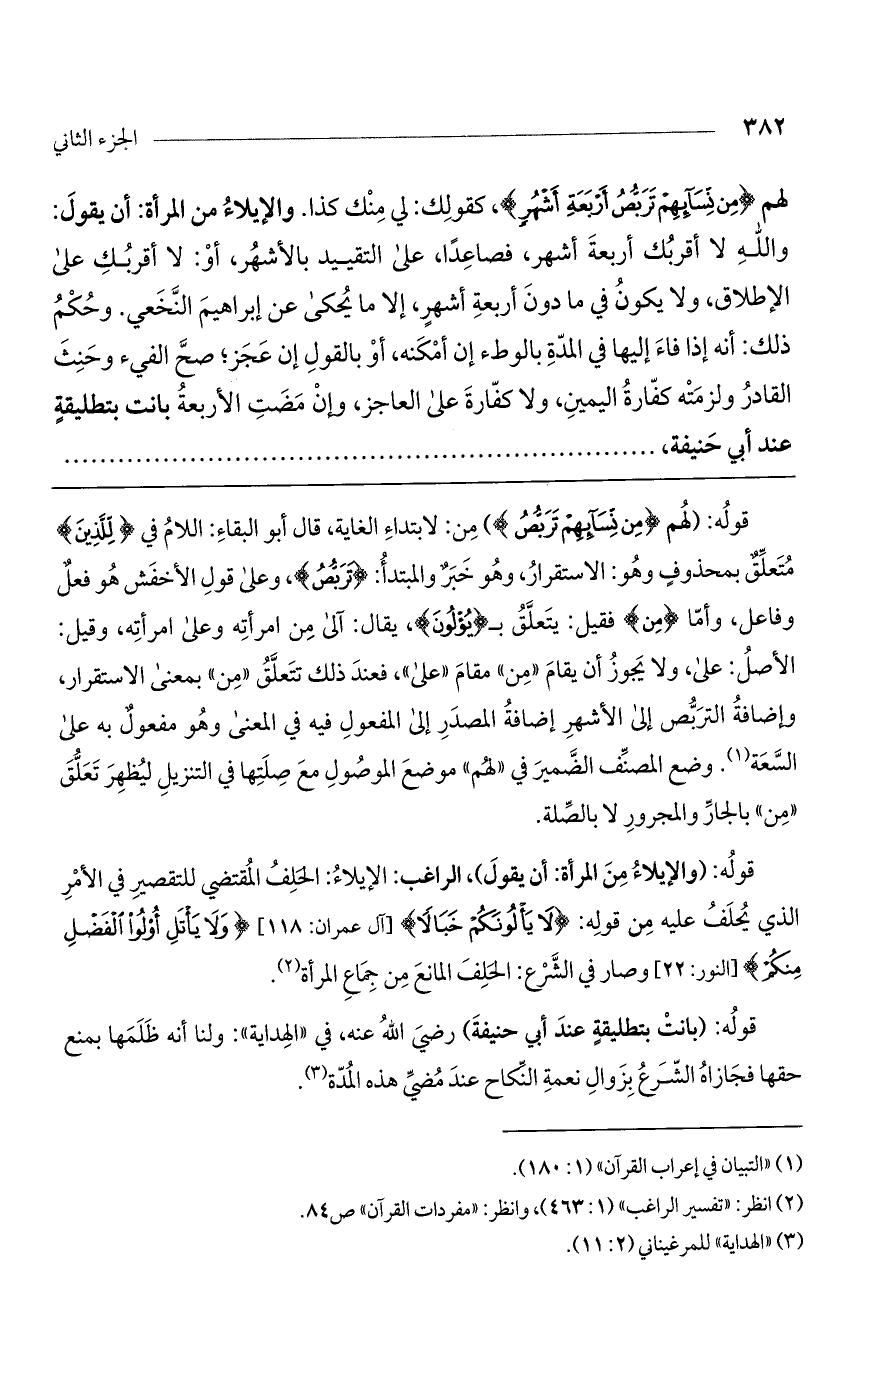 ٣٨٢ الجزء الثاني
لهم ﴿مِن نِّسَآئِهِمْ تَرَبُّصُ أَرْبَعَةِ أَشْهُرٍ﴾، كقولِك: لي مِنْك كذا. والإيلاءُ من المرأة: أن يقولَ:
واللهِ لا أقربُك أربعةَ أشهر، فصاعِدًا، علىٰ التقييد بالأشهُر، أوْ: لا أقربُكِ علىٰ
الإطلاق، ولا يكونُ في ما دونَ أربعةِ أشهرٍ، إلا ما يُحكىٰ عن إبراهيمَ النَّخَعي. وحُكْمُ
ذلك: أنه إذا فاءَ إليها في المدّةِ بالوطء إن أمْكَنه، أوْ بالقولِ إن عَجَز؛ صحَّ الفيء وحَنِثَ
القادرُ ولزمَتْه كفّارةُ اليمينِ، ولا كفّارةَ علىٰ العاجز، وإنْ مَضَتِ الأربعةُ بانت بتطليقةٍ
عند أبي حَنيفة، ..................................................................
قولُه: (لهُم ﴿مِن نِّسَآئِهِمْ تَرَبُّصُ﴾) مِن: لابتداءِ الغاية، قال أبو البقاءِ: اللامُ في ﴿لِّلَّذِينَ﴾
مُتَعلِّقٌ بمحذوفٍ وهُو: الاستقرارُ، وهُو خَبَرٌ والمبتدأُ: ﴿تَرَبُّصُ﴾، وعلىٰ قولِ الأخفَش هُو فعلٌ
وفاعل، وأمّا ﴿مِن﴾ فقيل: يتَعلَّقُ بـ﴿يُؤْلُونَ﴾، يقال: آلىٰ مِن امرأتِه وعلىٰ امرأتِه، وقيل:
الأصلُ: علىٰ، ولا يَجوزُ أن يقامَ «مِن» مقامَ «علىٰ»، فعندَ ذلك تتَعلَّقُ «مِن» بمعنىٰ الاستقرار،
وإضافةُ التربُّص إلىٰ الأشهرِ إضافةُ المصدَرِ إلىٰ المفعولِ فيه في المعنىٰ وهُو مفعولٌ به علىٰ
السَّعَة(١). وضع المصنِّف الضَّميرَ في «لهُم» موضعَ الموصُولِ معَ صِلَتِها في التنزيلِ ليُظهِرَ تَعَلُّقَ
«مِن» بالجارِّ والمجرورِ لا بالصِّلة.
قولُه: (والإيلاءُ مِنَ المرأة: أن يقولَ)، الراغب: الإيلاءُ: الحَلِفُ المُقتضي للتقصيرِ في الأمْرِ
الذي يُحلَفُ عليه مِن قولِه: ﴿لَا يَأْلُونَكُمْ خَبَالًا﴾ [آل عمران: ١١٨] ﴿وَلَا يَأْتَلِ أُوْلُواْ ٱلْفَضْلِ
مِنكُمْ﴾ [النور: ٢٢] وصار في الشَّرْع: الحَلِفَ المانعَ مِن جِمَاعِ المرأة(٢).
قولُه: (بانتْ بتطليقةٍ عندَ أبي حنيفةَ) رضيَ اللهُ عنه، في «الهِداية»: ولنا أنه ظَلَمَها بمنع
حقها فجَازاهُ الشَّرعُ بِزَوالِ نعمةِ النِّكاح عندَ مُضيِّ هذه المُدّة(٣).
(١) «التبيان في إعراب القرآن» (١: ١٨٠).
(٢) انظر: «تفسير الراغب» (١: ٤٦٣)، وانظر: «مفردات القرآن» ص٨٤.
(٣) «الهداية» للمرغيناني (٢: ١١).